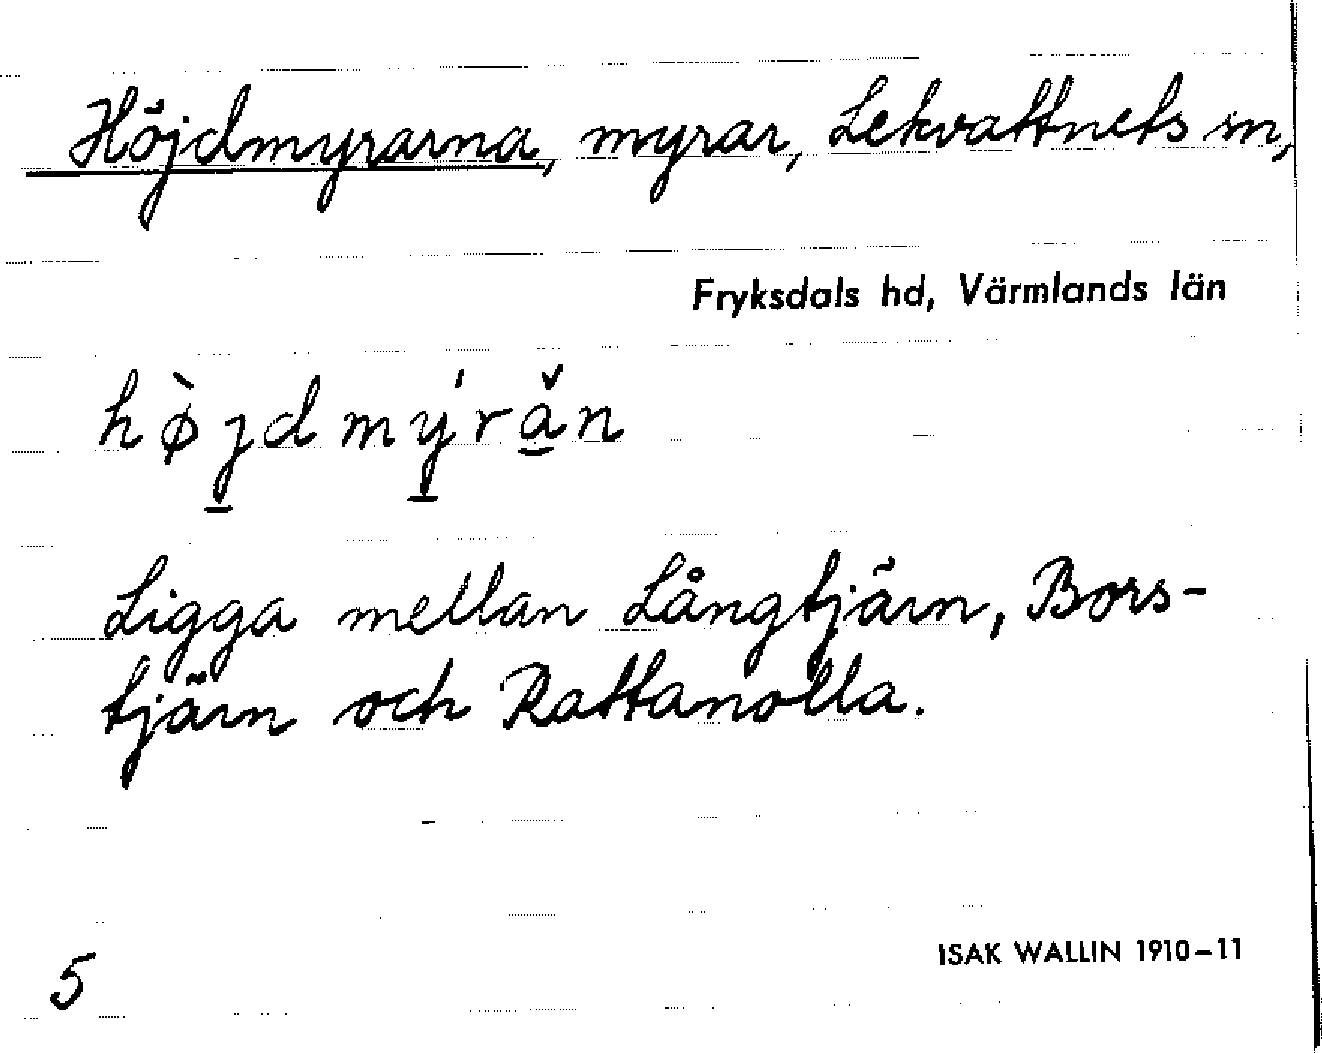 Höjdmyrarna, myrar, Lekvattnets sn,
Fryksdals hd, Värmlands län
hø̀j̱dmý̱rǎ̱n
Ligga mellan Långtjärn, Bors-
tjärn och Rattanolla.
ISAK WALLIN 1910-11
5